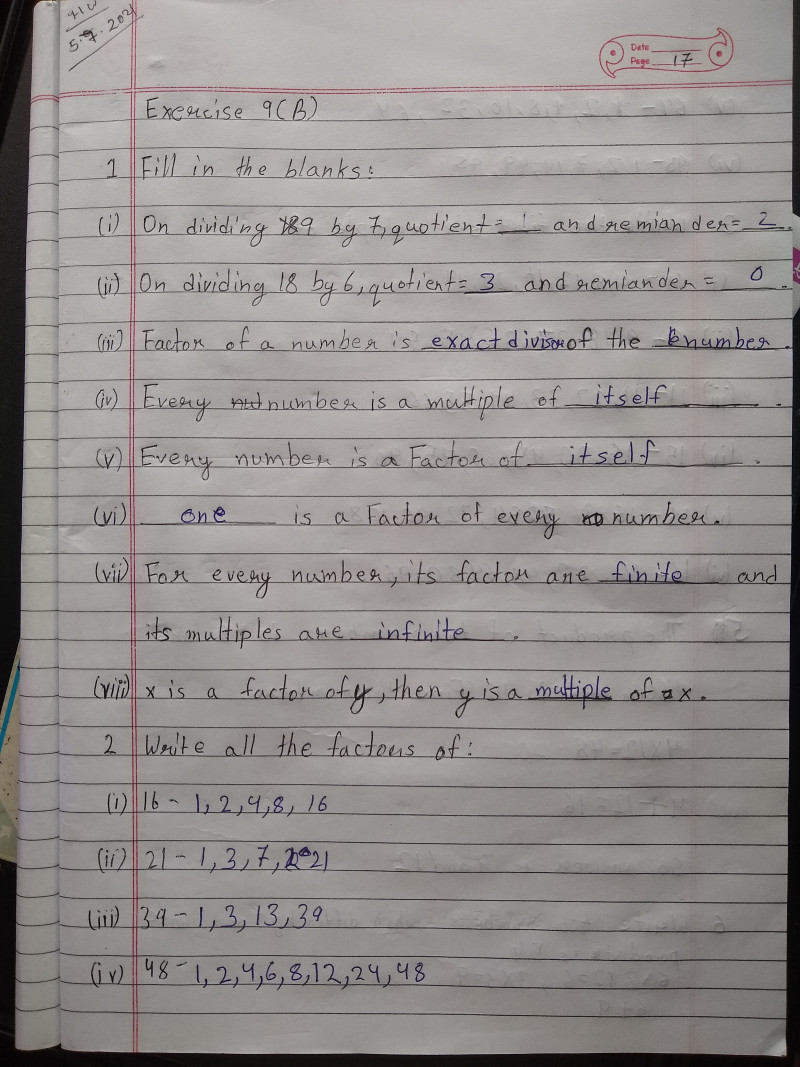 H.W
5.7.2021
Date
Page 17
Exercise 9(B)
1 Fill in the blanks:
(i) On dividing 9 by 7, quotient= 1 and remiander= 2.
(ii) On dividing 18 by 6, quotient= 3 and remiander = 0.
(iii) Factor of a number is exact divisor of the number.
(iv) Every number is a multiple of itself.
(v) Every number is a Factor of itself.
(vi) one is a Factor of every number.
(vii) For every number, its factor are finite and
its multiples are infinite.
(viii) x is a factor of y, then y is a multiple of x.
2 Write all the factors of:
(i) 16 - 1, 2, 4, 8, 16
(ii) 21 - 1, 3, 7, 21
(iii) 39 - 1, 3, 13, 39
(iv) 48 - 1, 2, 4, 6, 8, 12, 24, 48